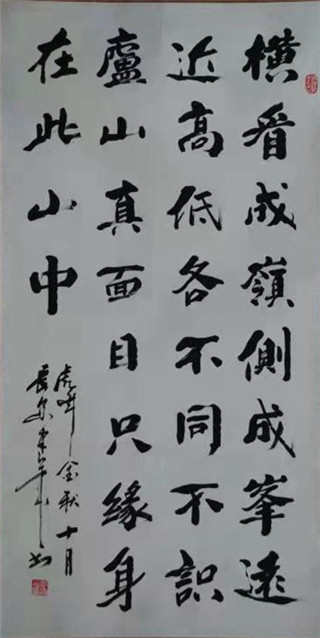 橫看成嶺側成峯遠
近高低各不同不識
廬山真面目只緣身
在此山中
虎年金秋十月
長安